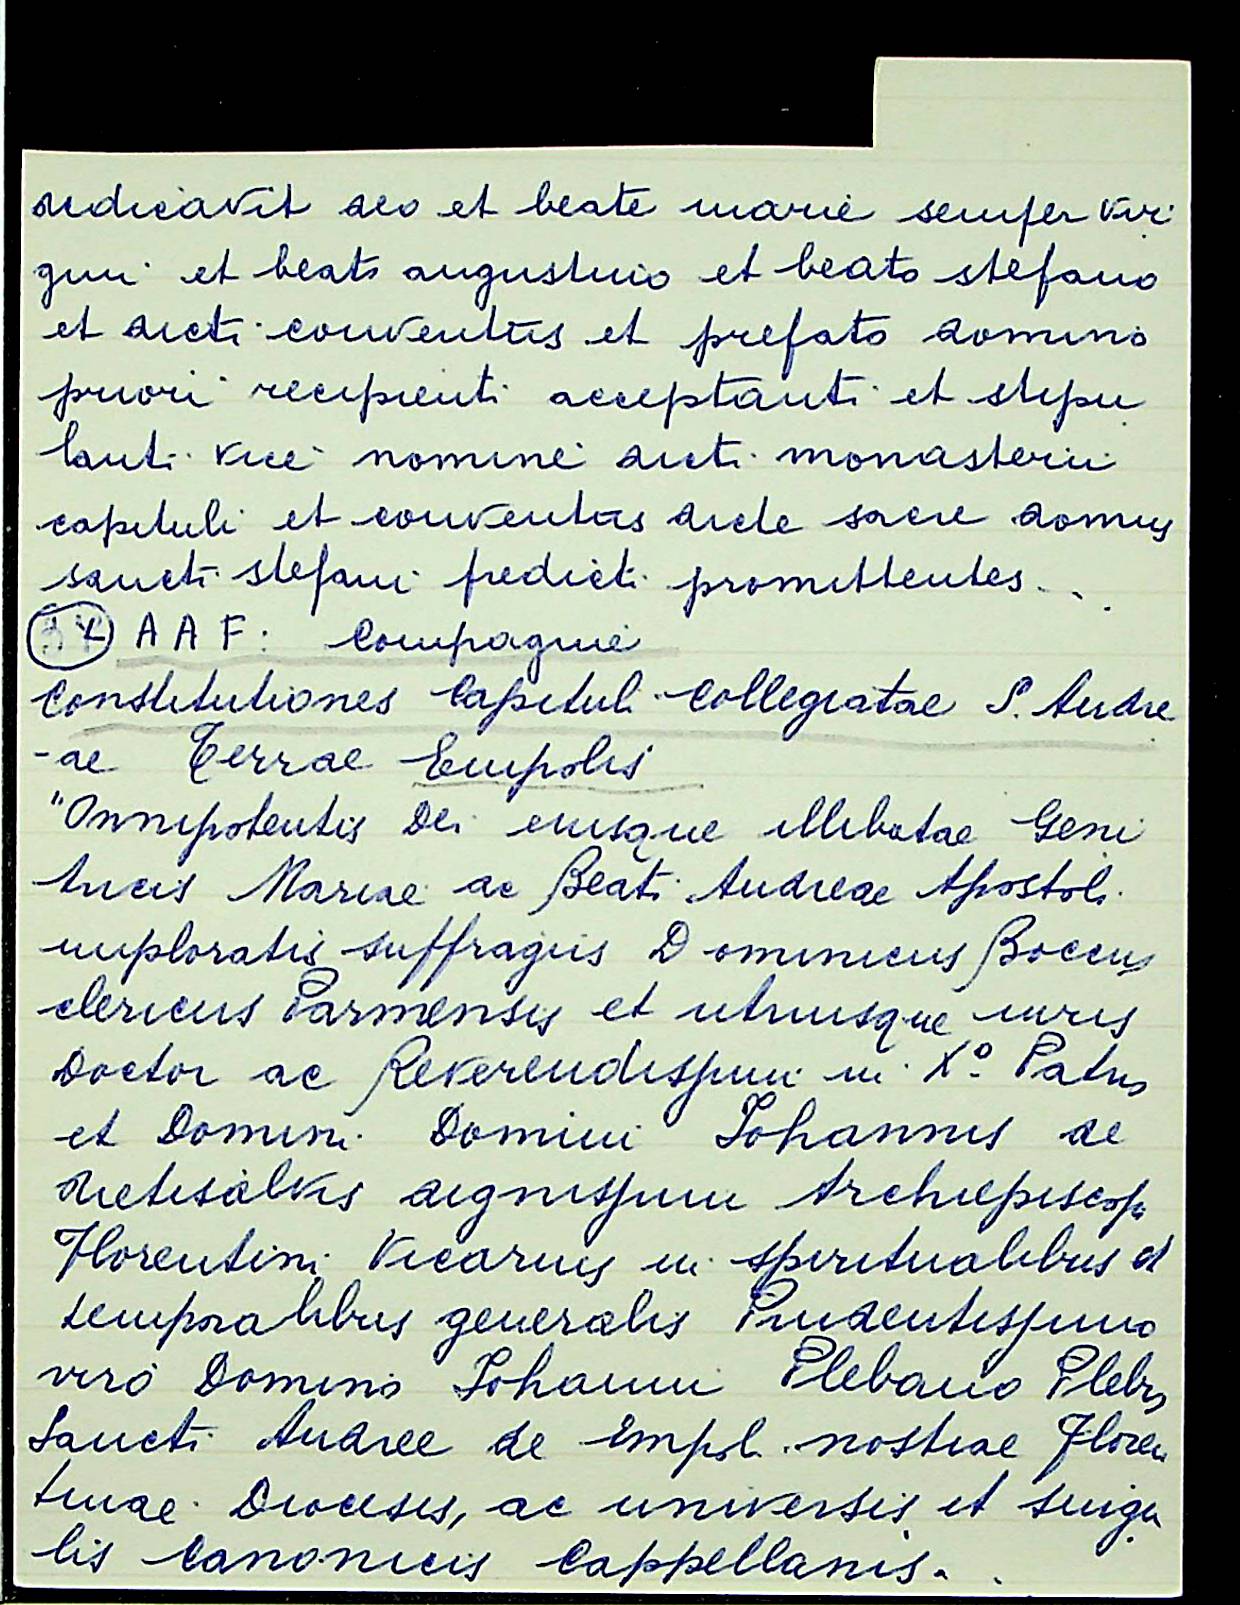 dedicavit deo et beate marie semper vir
gini et beato augustino et beato stefano
et dicti conventus et prefato domino
priori recipienti acceptanti et stipu
lanti vice nomine dicti monasterii
capituli et conventus dicte sacre domus
sancti stefani predicti promittentes...
A A F: Compagnie
Constitutiones Capituli Collegiatae S. Andre
-ae Terrae Empolis
"Omnipotentis Dei eiusque illibatae Geni
tricis Mariae ac Beati Andreae Apostoli
imploratis suffragiis Dominicus Boccus
clericus Parmensis et utriusque iuris
Doctor ac Reverendissimi in Xo. Patris
et Domini Domini Johannis de
dignissimi Archiepiscopi
Florentini Vicarius in spiritualibus et
temporalibus generalis Prudentissimo
viro Domino Johanni Plebano Plebis
Sancti Andree de Empoli nostrae Floren
tinae Diocesis, ac universis et singu
lis Canonicis Cappellanis..